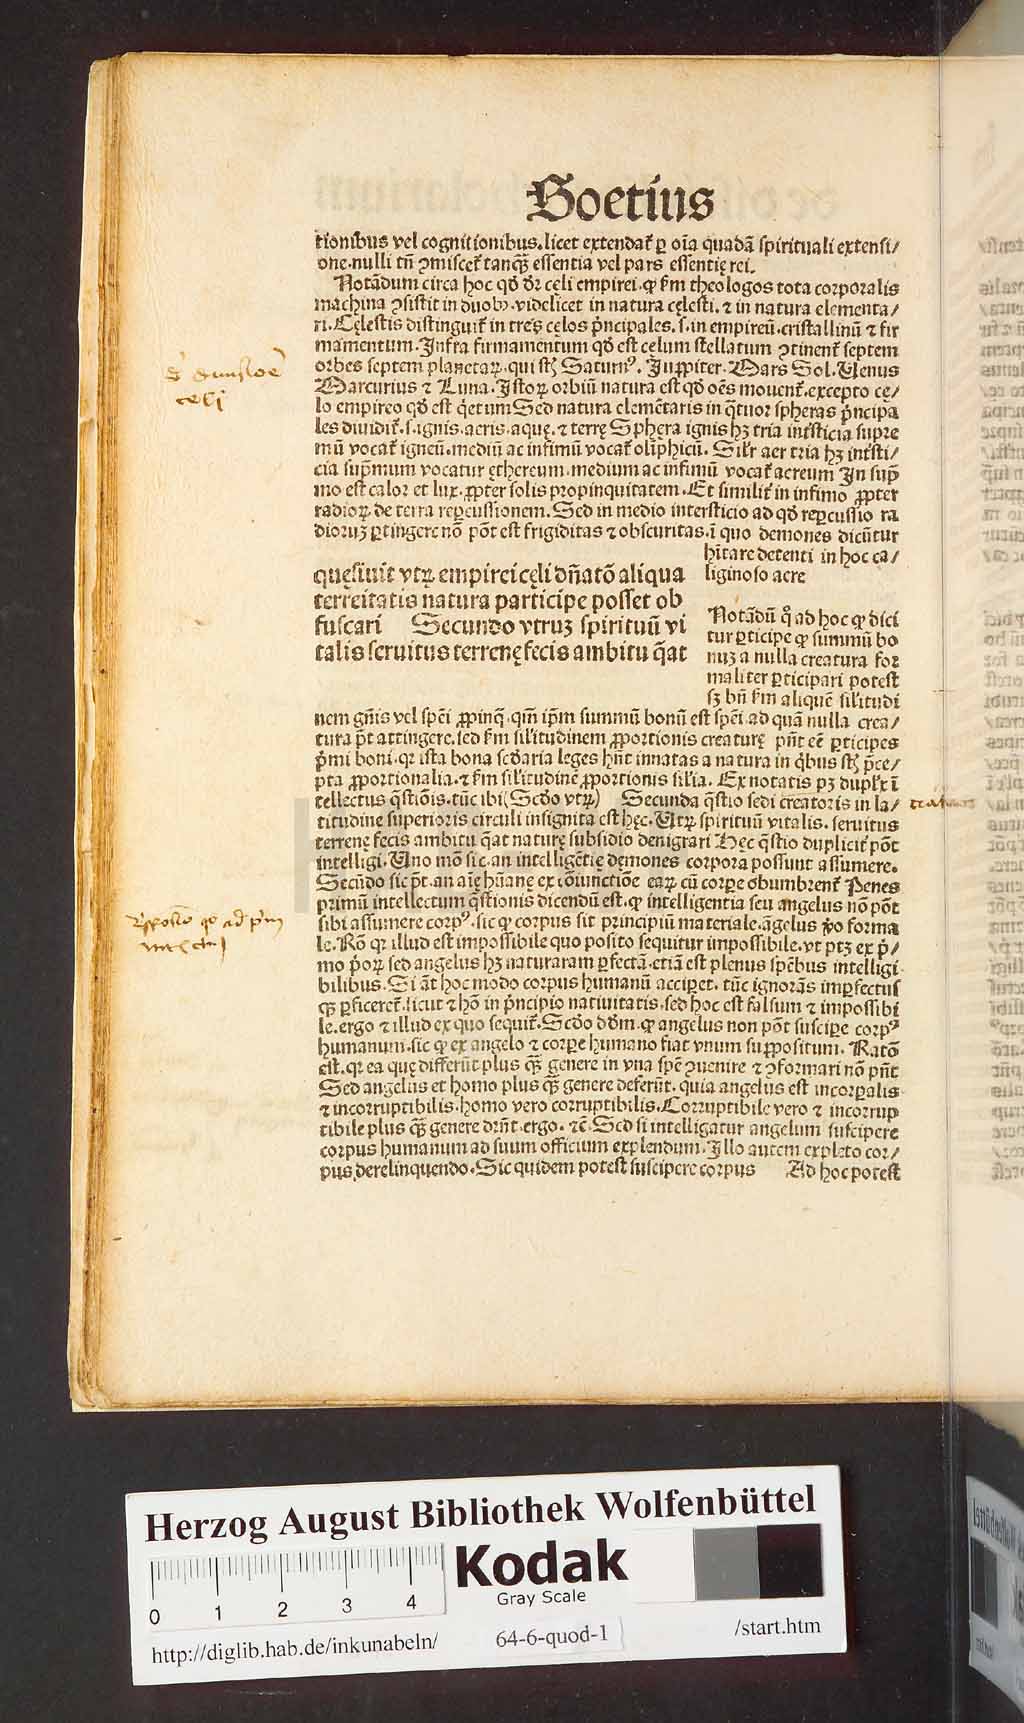 Boetius
tionibus vel cognitionibus. licet extendat̃ ꝑ oı̃a quadã spirituali extensi/
one. nulli tñ ꝯmiscet̃ tanq̃ȝ essentia vel pars essentię rei.
Notãdum circa hoc qđ dr̃ celi empirei. ꝙ ẜm theologos tota corporalis
machina ꝯsistit in duobꝰ. videlicet in natura cęlesti. ⁊ in natura elementa/
ri. Cęlestis distinguit̃ in tres celos p̃ncipales. s. in empireũ. cristallinũ ⁊ fir
mamentum. Infra firmamentum qđ est celum stellatum ꝯtinent̃ septem
orbes septem planetaꝝ. qui sũt Saturnꝰ. Iuppiter. Mars Sol. Venus
Marcurius ⁊ Luna. Istoꝝ orbiũ natura est qđ oẽs mouent̃. excepto ce/
lo empireo qđ est q̇etum Sed natura elemẽtaris in q̃tuor spheras p̃ncipa
les diuidit̃. s. ignis. aeris. aquę. ⁊ terrę Sphera ignis hȝ tria int̃sticia supre
mũ vocat̃ igneũ. mediũ ac infimũ vocat̃ olĩphicũ. Silr̃ aer tria hȝ int̃sti/
cia sup̃mum vocatur ęthereum. medium ac infimũ vocat̃ aereum In sup̃
mo est calor et lux. ꝓpter solis propinquitatem. Et similit̃ in infimo ꝓpter
radioꝝ de terra reꝑcussionem. Sed in medio intersticio ad qđ reꝑcussio ra
dioruȝ ꝑtingere nõ põt est frigiditas ⁊ obscuritas. ĩ quo demones dicũtur
hĩtare detenti in hoc ca/
liginoso aere
quęsiuit vtꝝ empirei cęli dñatõ aliqua
terreitatis natura participe posset ob
fuscari Secundo vtruȝ spirituũ vi
talis seruitus terrenę fecis ambitu q̃at
Notãdũ qͣ ad hoc ꝙ dici
tur ꝑticipe ꝙ summũ bo
nuȝ a nulla creatura for
maliter ꝑticipari potest
sȝ bñ ẜm aliquẽ sil̃itudi
nem gñis vel spẽi ꝓpinq̃. qm̃ ip̃m summũ bonũ est spẽi ad quã nulla crea/
tura p̃t attingere. sed ẜm sil̃itudinem ꝓportionis creaturę pñt eẽ ꝑticipes
p̃mi boni. qꝛ ista bona scđaria leges hñt innatas a natura in q̇bus sũt p̃ce/
pta ꝓportionalia. ⁊ ẜm sil̃itudinẽ ꝓportionis sil̃ia. Ex notatis pȝ dupl̃x ĩ
tellectus q̃stiõis. tũc ibi (Scđo vtꝝ) Secunda q̃stio sedi creatoris in la/
titudine superioris circuli insignita est hęc. Vtꝝ spirituũ vitalis. seruitus
terrenę fecis ambitu q̃at naturę subsidio denigrari Hęc q̃stio duplicit̃ põt
intelligi. Vno mõ sic. an intelligẽtię dęmones corpora possunt assumere.
Secũdo sic p̃t. an aı̃ę hũanę ex ꝯiunctiõe eaꝝ cũ corꝑe obumbrent̃ Penes
primũ intellectum q̃stionis dicendũ est. ꝙ intelligentia seu angelus nõ põt
sibi assumere corpꝰ. sic ꝙ corpus sit principiũ materiale. ãgelus ꝟo forma
le. Rõ qꝛ illud est impossibile quo posito sequitur impossibile. vt ptȝ ex p̃/
mo p̃oꝝ sed angelus hȝ naturaram ꝑfectã. etiã est plenus spẽbus intelligi
bilibus. Si ãt hoc modo corpus humanũ acciꝑet. tũc ignorãs imꝑfectus
q̃ȝ ꝑficeret̃. sicut ⁊ hõ in p̃ncipio natiuitatis. sed hoc est falsum ⁊ impossibi
le. ergo ⁊ illud ex quo sequit̃. Scđo đđm. ꝙ angelus non põt susciꝑe corpꝰ
humanum. sic ꝙ ex angelo ⁊ corꝑe humano fiat vnum suppositum. Ratõ
est. qꝛ ea quę differũt plus q̃ȝ genere in vna spẽ ꝯuenire ⁊ ꝯformari nõ pñt
Sed angelus et homo plus q̃ȝ genere deferũt. quia angelus est incorꝑalis
⁊ incorruptibilis. homo vero corruptibilis. Corruptibile vero ⁊ incorrup
tibile plus q̃ȝ genere dr̃nt. ergo. ⁊c̃. Sed si intelligatur angelum suscipere
corpus humanum ad suum officium explendum. Illo autem expleto cor/
pus derelinquendo. Sic quidem potest suscipere corpus Ad hoc potest
celi
Herzog August Bibliothek Wolfenbüttel
Kodak
Gray Scale
0 1 2 3 4
http://diglib.hab.de/inkunabeln/ 64-6-quod-1 /start.htm